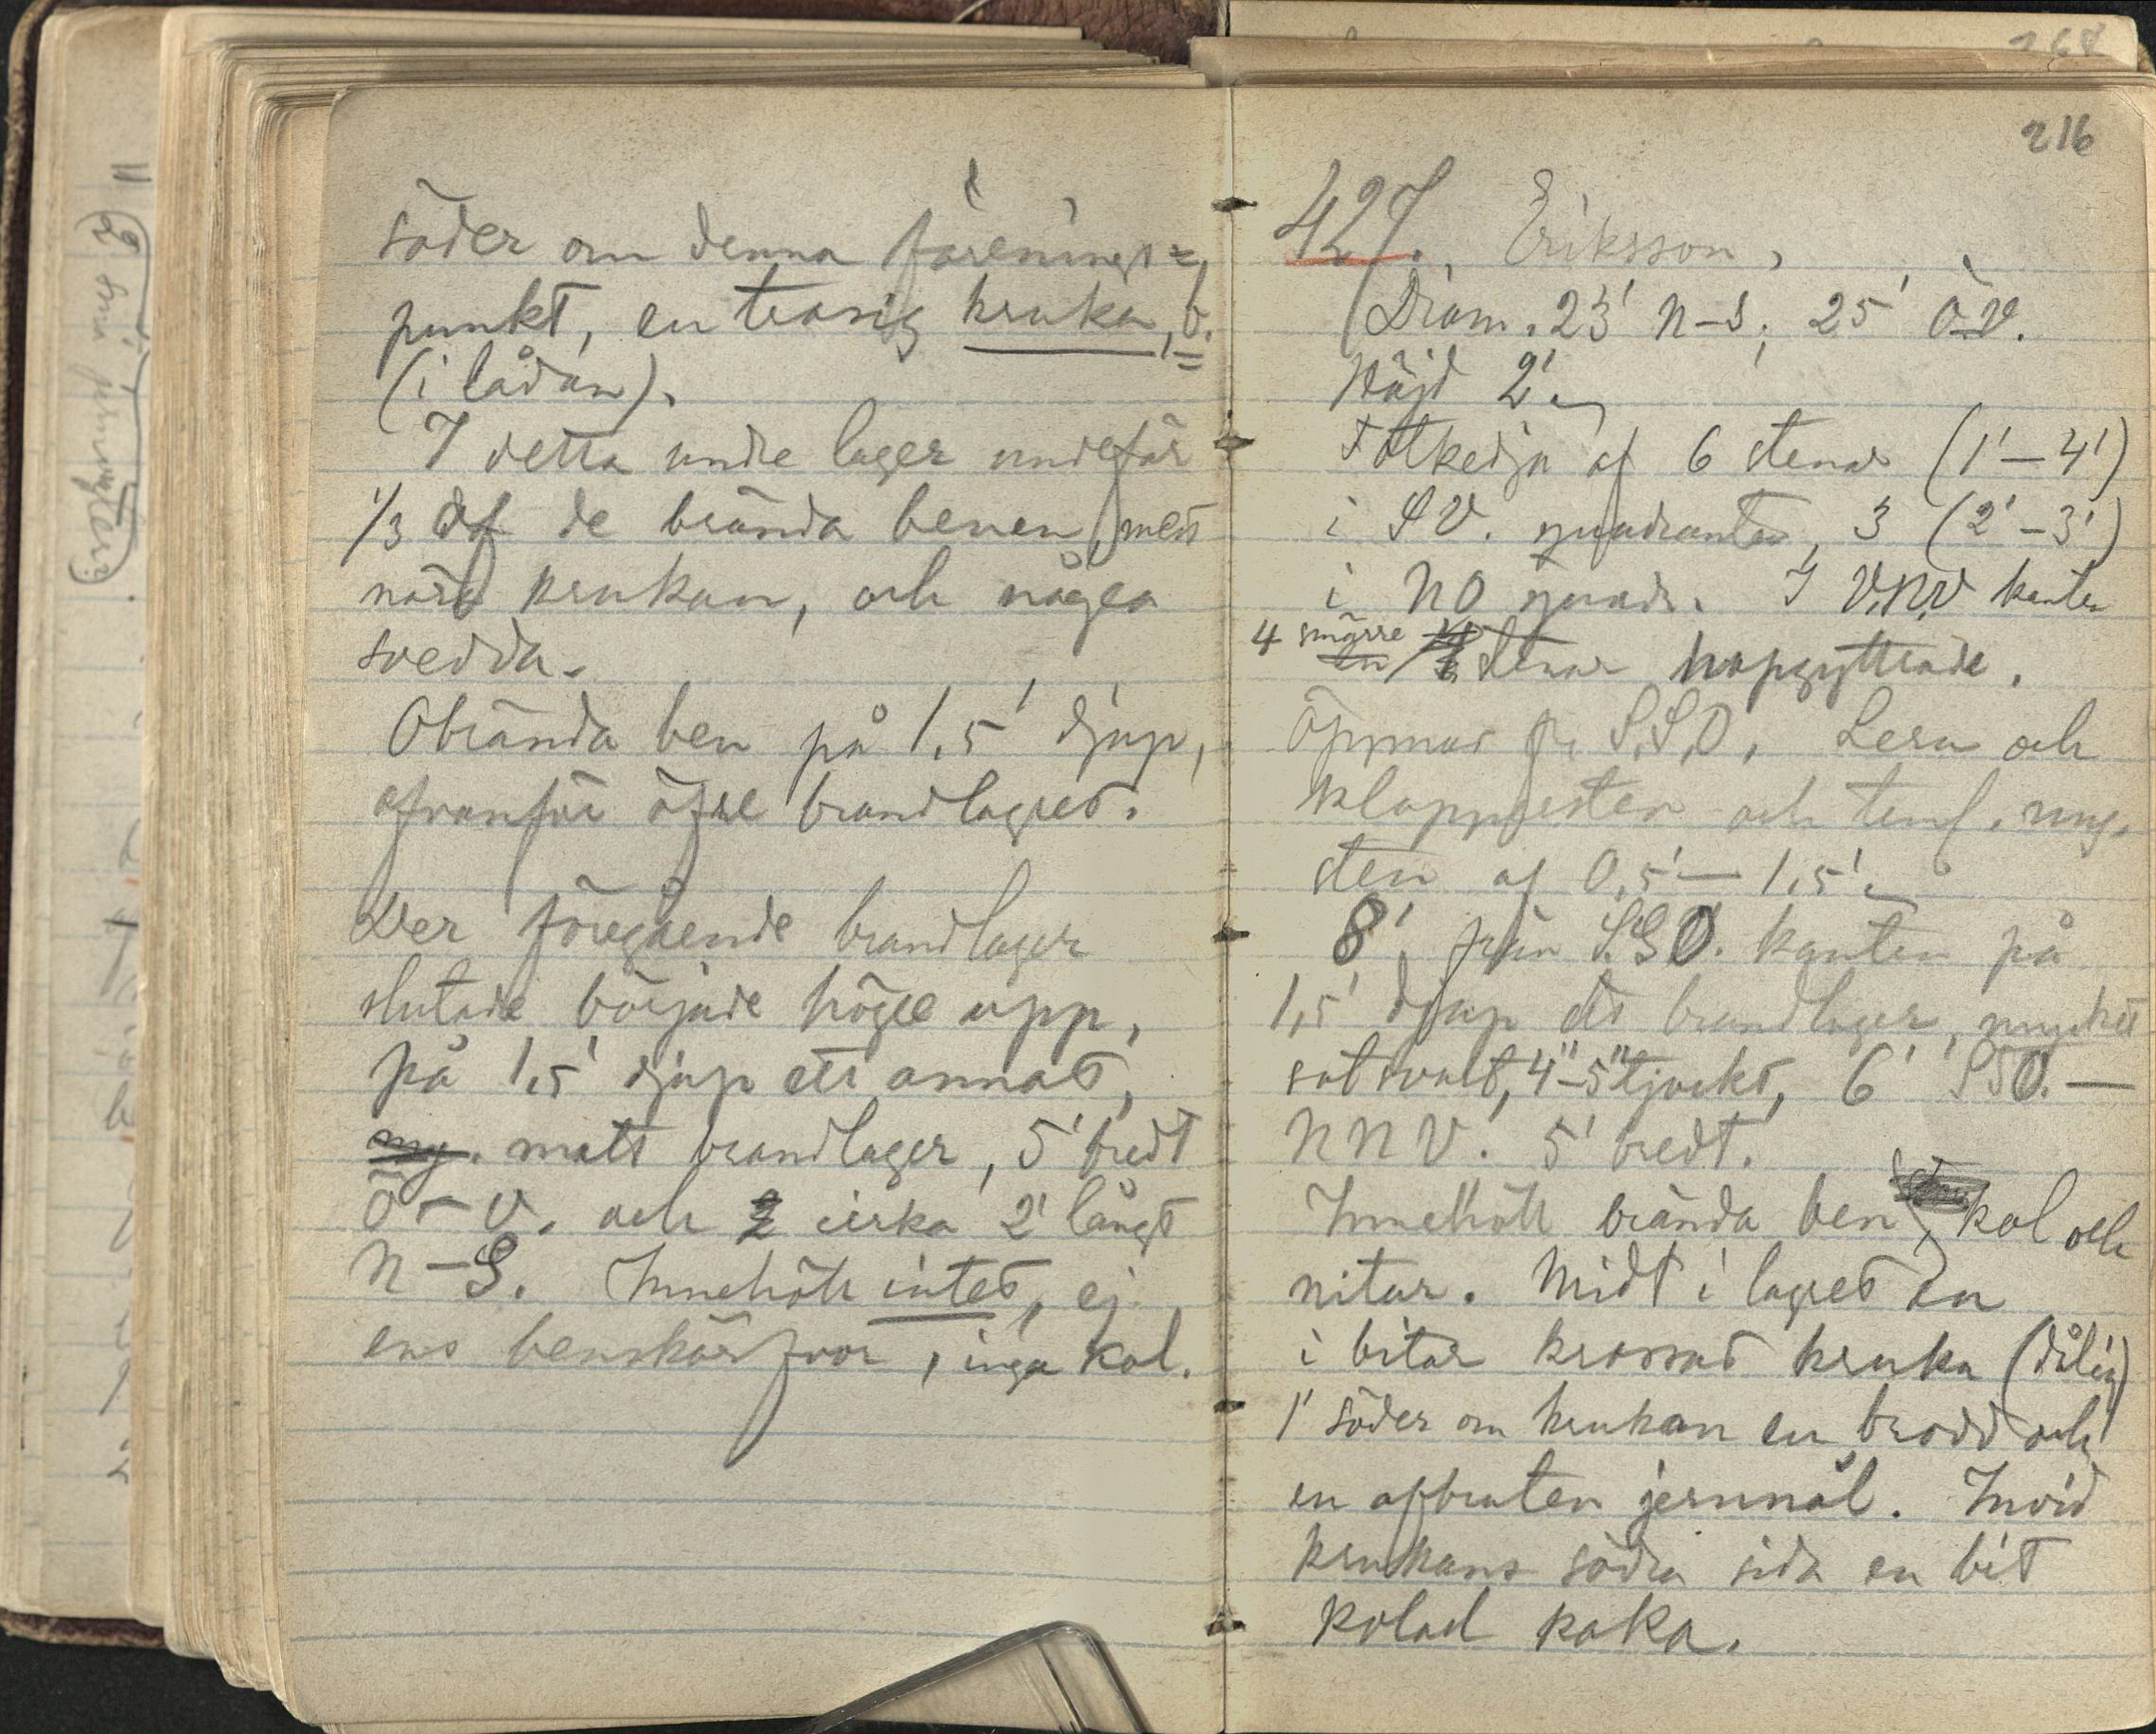 söder om denna förenings=
punkt, en trasig kruka, b.
(i lådan).
I detta undre lager undefär
1/3 af de brända benen, mest
nära krukan, och några
svedda.
Obrända ben på 1,5' djup,
ofvanför öfre brandlagret.
Der föregående brandlager
slutade började högre upp,
på 1,5' djup ett annat,
my. matt brandlager, 5' bredt
Ö–V. och 2 cirka 2' långt
N–S. Innehöll intet, ej
ens benskärfvor, inga kol.
216
427. Eriksson,
Diam. 23' N–S; 25' Ö–V.
Höjd 2'.
Fotkedja af 6 stenar (1'–4')
i SV. quadranten, 3 (2'–3')
i NO quadr. I V.N.V kanten
4 smärre
en stenar hopgyttrade.
Öppnad fr. S.S.O. Lera och
klappersten och teml. myc.
sten af 0,5'–1,5'.
8' från S.S.O. kanten på
1,5' djup ett brandlager, mycket
sotsvart, 4"–5" tjockt, 6' SSO.—
NNV. 5' bredt.
Innehöll brända ben, kol och
nitar. Midt i lagret en
i bitar krossad kruka (dålig)
1' söder om krukan en brodd och
en afbruten jernnål. Invid
krukans södra sida en bit
kolad kaka.